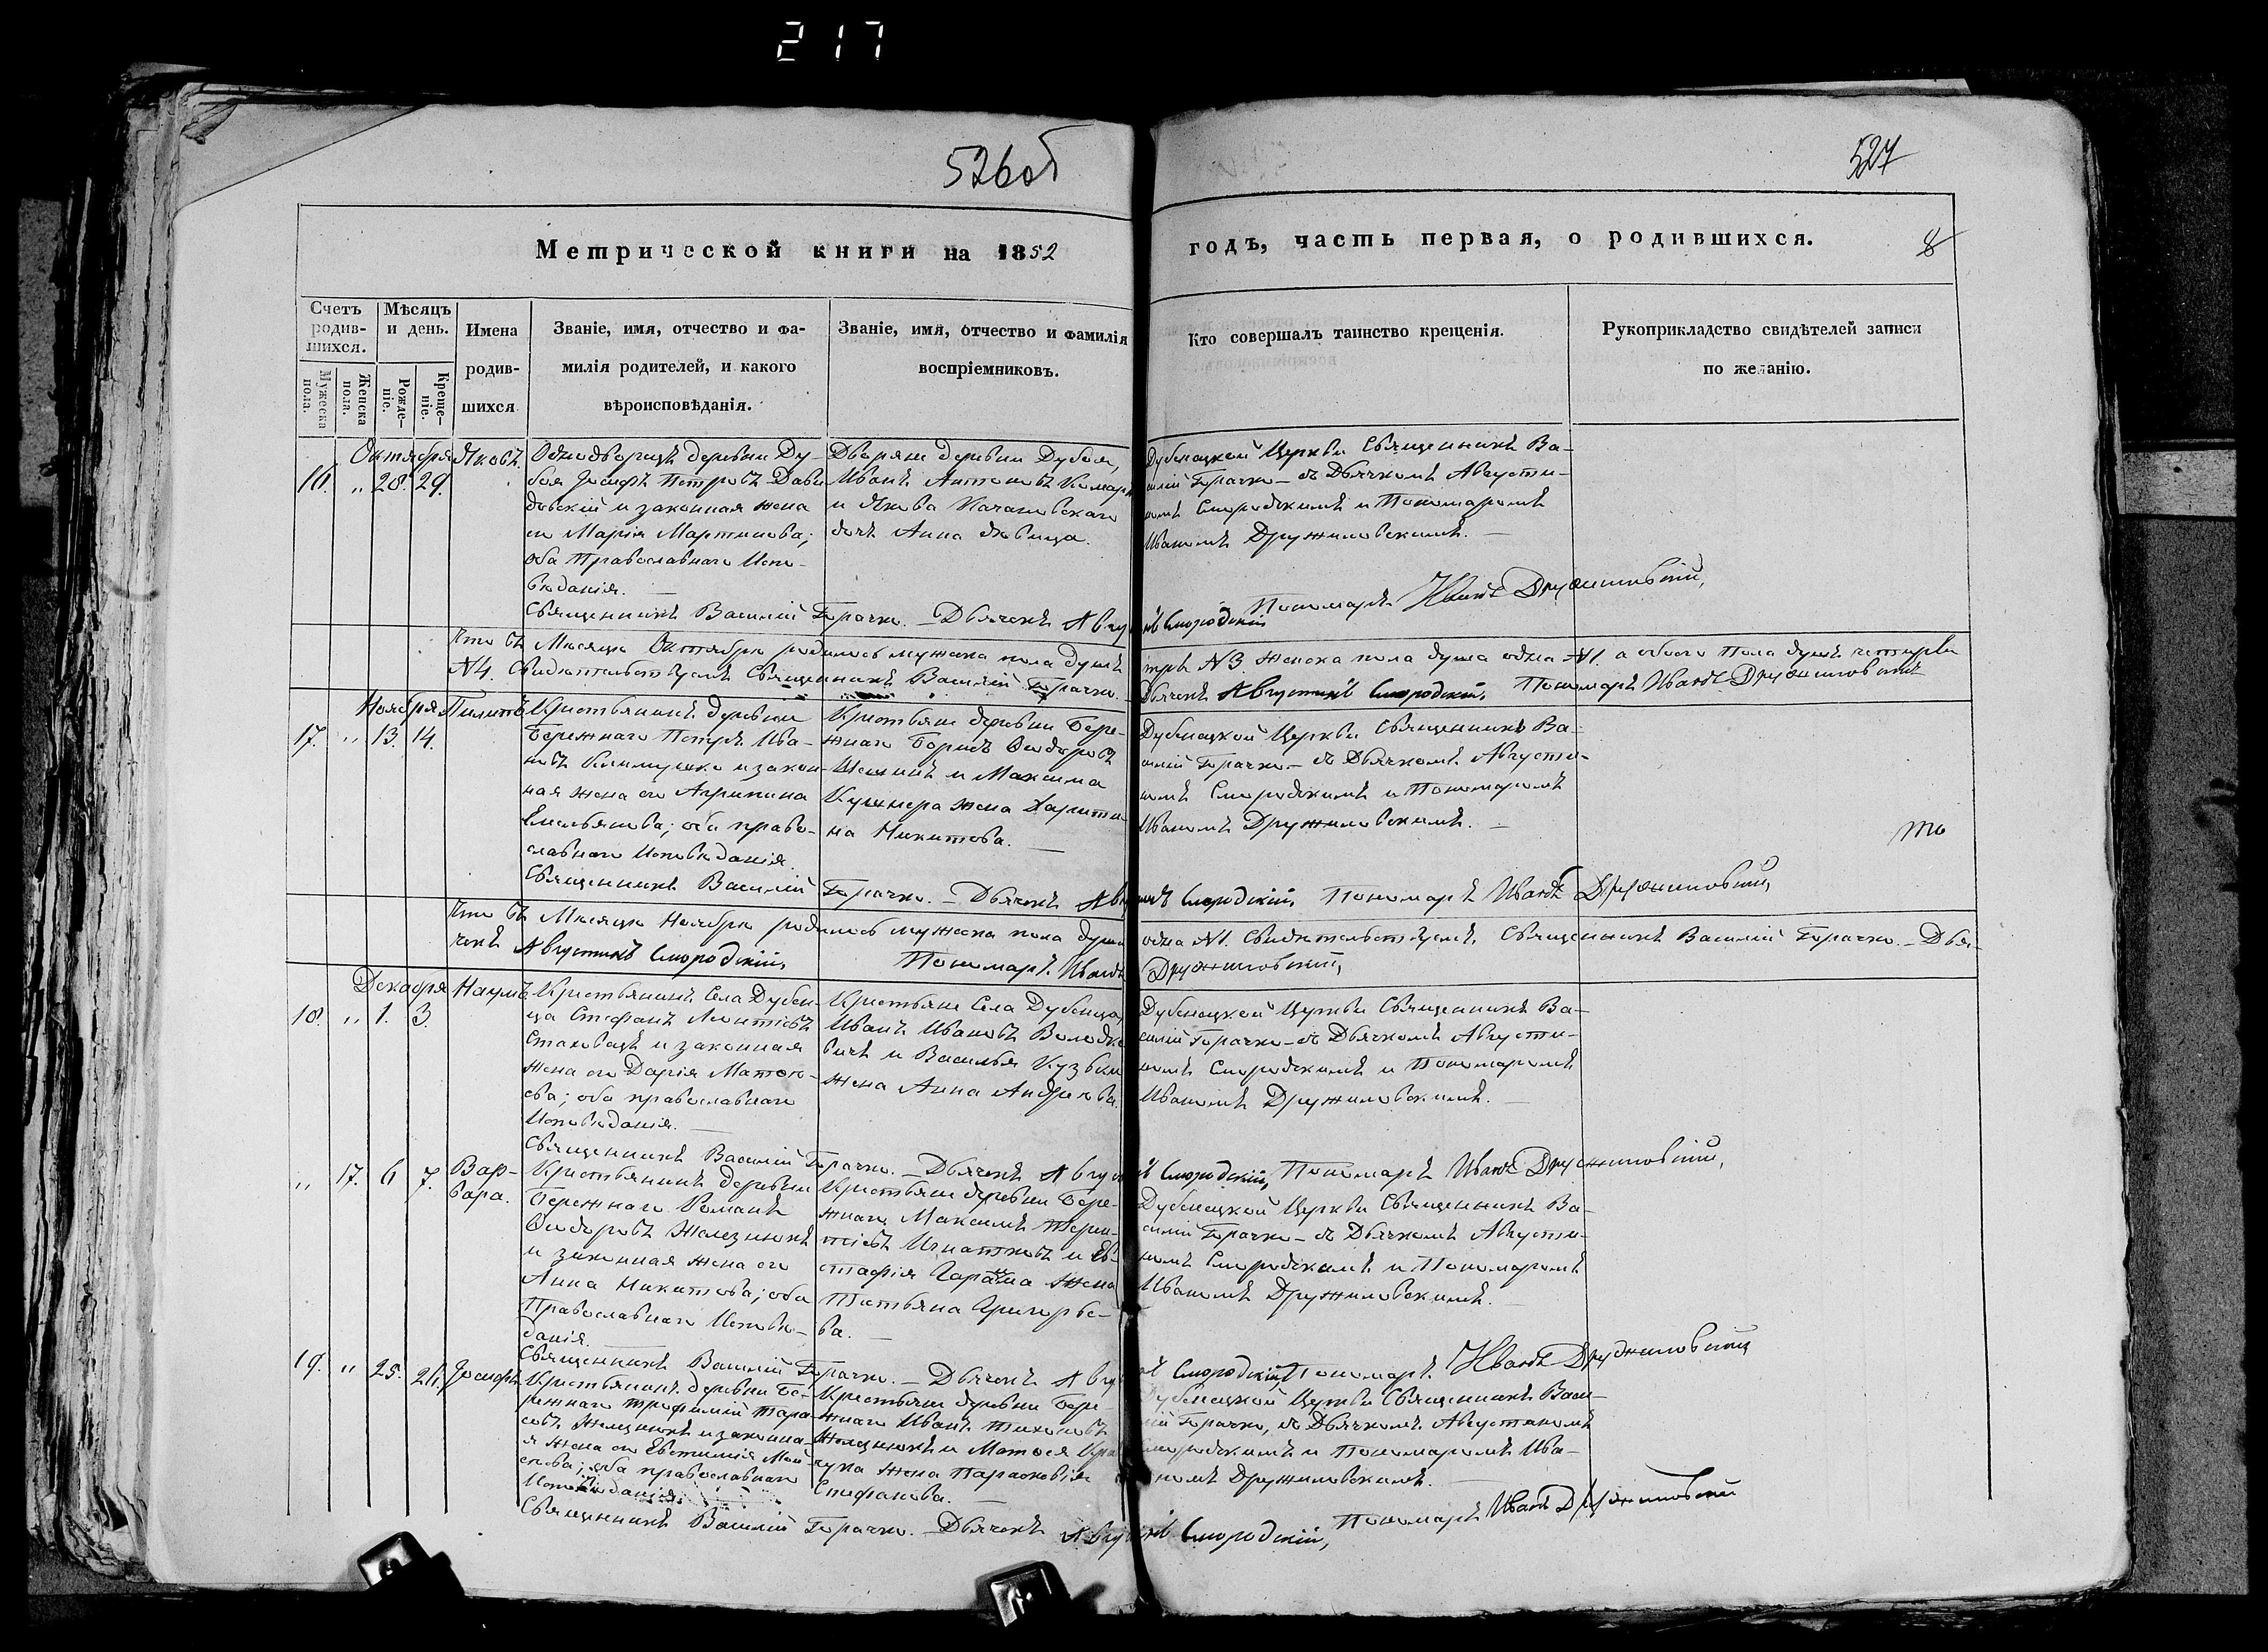 217
526об
527
Метрической книги на 1852
годъ, часть первая, о родившихся.
8
Счетъ родив-шихся.
Мѣсяцъ и день.
Имена родив-шихся
Званіе, имя, отчество и фа-
милія родителей, и какого
вѣроисповѣданія.
Званіе, имя, отчество и фамилія
воспріемниковъ.
Кто совершалъ таинство крещенія.
Рукоприкладство свидѣтелей записи
по желанію.
Мужеска пола.
Женска пола.
Рожде-ніе.
Креще-ніе.
Октября
16. " 28. 29.
Яковъ.
Однодворецъ деревни Ду-
боя Іосифъ Петровъ Дави
довскій и законная жена
его Марія Мартинова;
оба Православнаго Испо-
вѣданія.
Дворяне деревни Дубоя,
Иванъ Антоновъ Комар
и Якова Качановскаго
дочь Анна дѣвица.
Дубенецкой Церкви Священникъ Ва-
силій Горачко – съ Дьячкомъ Августи-
номъ Смородскимъ и Пономаремъ
Иваномъ Дружиловскимъ.
Священникъ Василій Горачко. – Дьячекъ Августинъ Смородскій Пономарь Иванъ Дружиловскій,
Что въ Месяцѣ Октябрѣ родилось мужеска пола душъ три N3 женска пола душа одна N1. а обоего Пола душъ четыри
N4. Свидѣтельствуемъ Священникъ Василій Горачко. Дьячекъ Августинъ Смородскій, Пономарь Иванъ Дружиловскій
Ноября
17. " 13. 14.
Филипъ
Крестьянинъ деревни
Бережнаго Петръ Ива-
новъ Климушко и закон-
ная жена его Агрипина
Емельянова; оба право-
славнаго Исповѣданія
Крестьяне деревни Бере-
жнаго Борисъ Ѳедоровъ
и Максима
Кушнера жена Харити-
на Никитова.
Дубенецкой Церкви Священникъ Ва-
силій Горачко – съ Дьячкомъ Августи-
номъ Смородскимъ и Пономаремъ
Иваномъ Дружиловскимъ.
Священникъ Василій Горачко. – Дьячекъ Августинъ Смородскій, Пономарь Иванъ Дружиловскій,
Что въ Месяцѣ Ноябрѣ родилось мужеска пола душа одна N1. Свидѣтельствуемъ. Священникъ Василій Горачко. – Дья-
чекъ Августинъ Смородскій, Пономарь Иванъ Дружиловскій,
Декабря
18. " 1. 3.
Наумъ
Крестьянинъ Села Дубен-
ца Стефанъ Леонтіевъ
Становецъ и законная
жена его Дарія Матѳе-
ева; оба православнаго
Исповѣданія.
Крестьяне Села Дубенца,
Иванъ Ивановъ Володко
вичъ и Василья Кузьки
жена Анна Андреева.
Дубенецкой Церкви Священникъ Ва-
силій Горачко – съ Дьячкомъ Августи-
номъ Смородскимъ и Пономаремъ
Иваномъ Дружиловскимъ.
Священникъ Василій Горачко. – Дьячекъ Августинъ Смородскій, Пономарь Иванъ Дружиловскій,
" 17. 6 7.
Вар-
вара.
Крестьянинъ деревни
Бережнаго Романъ
Ѳедоровъ Железнюкъ
и законная жена его
Анна Никитова; оба
Православнаго Исповѣ-
данія.
Крестьяне деревни Бере-
жнаго, Максимъ Терен-
тіевъ Игнатковъ и Ев-
стафія жена
Татьяна Григорье-
ва.
Дубенецкой Церкви Священникъ Ва-
силій Горачко – съ Дьячкомъ Августи-
номъ Смородскимъ и Пономаремъ
Иваномъ Дружиловскимъ.
Священникъ Василій Горачко. – Дьячекъ Августинъ Смородскій, Пономарь Иванъ Дружиловскій
19. " 25. 26.
Іосифъ.
Крестьянинъ деревни Бе-
режнаго Трофимій Тара
совъ Железнюкъ и законна-
я жена его Евфимія Мои-
сеева; оба православнаго
Исповѣданія.
Крестьяне деревни Бере-
жнаго Иванъ Тихоновъ
Железнюкъ и Матѳея
жена Парасковія
Стефанова.
Дубенецкой Церкви Священникъ Васи-
лій Горачко, съ Дьячкомъ Августиномъ
Смородскимъ и Пономаремъ Ива-
номъ Дружиловскимъ.
Священникъ Василій Горачко. – Дьячекъ Августинъ Смородскій, Пономарь Иванъ Дружиловскій